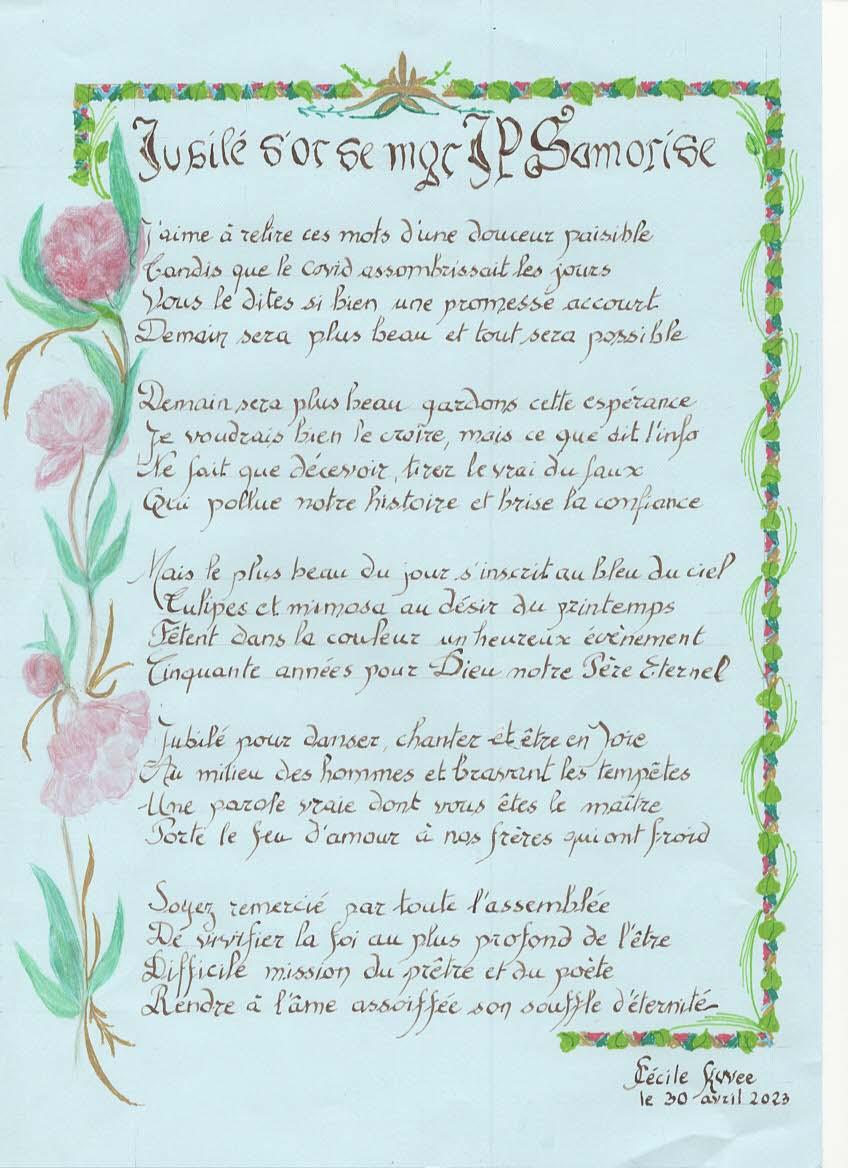 Jubilé d'or de mgr JP Samoride
J'aime à relire ces mots d'une douceur paisible
Tandis que le covid assombrissait les jours
Vous le dites si bien une promesse accourt
Demain sera plus beau et tout sera possible
Demain sera plus beau gardons cette espérance
Je voudrais bien le croire, mais ce que dit l'info
Ne fait que décevoir, tirer le vrai du faux
Qui pollue notre histoire et brise la confiance
Mais le plus beau du jour s'inscrit au bleu du ciel
Tulipes et mimosa au désir du printemps
Fêtent dans la couleur un heureux évènement
Cinquante années pour Dieu notre Père Eternel
Jubilé pour danser, chanter et être en Joie
Au milieu des hommes et bravant les tempêtes
Une parole vraie dont vous êtes le maître
Porte le feu d'amour à nos frères qui ont froid
Soyez remercié par toute l'assemblée
De vivifier la foi au plus profond de l'être
Difficile mission du prêtre et du poète
Rendre à l'âme assoiffée son souffle d'éternité
Cécile
le 30 avril 2023